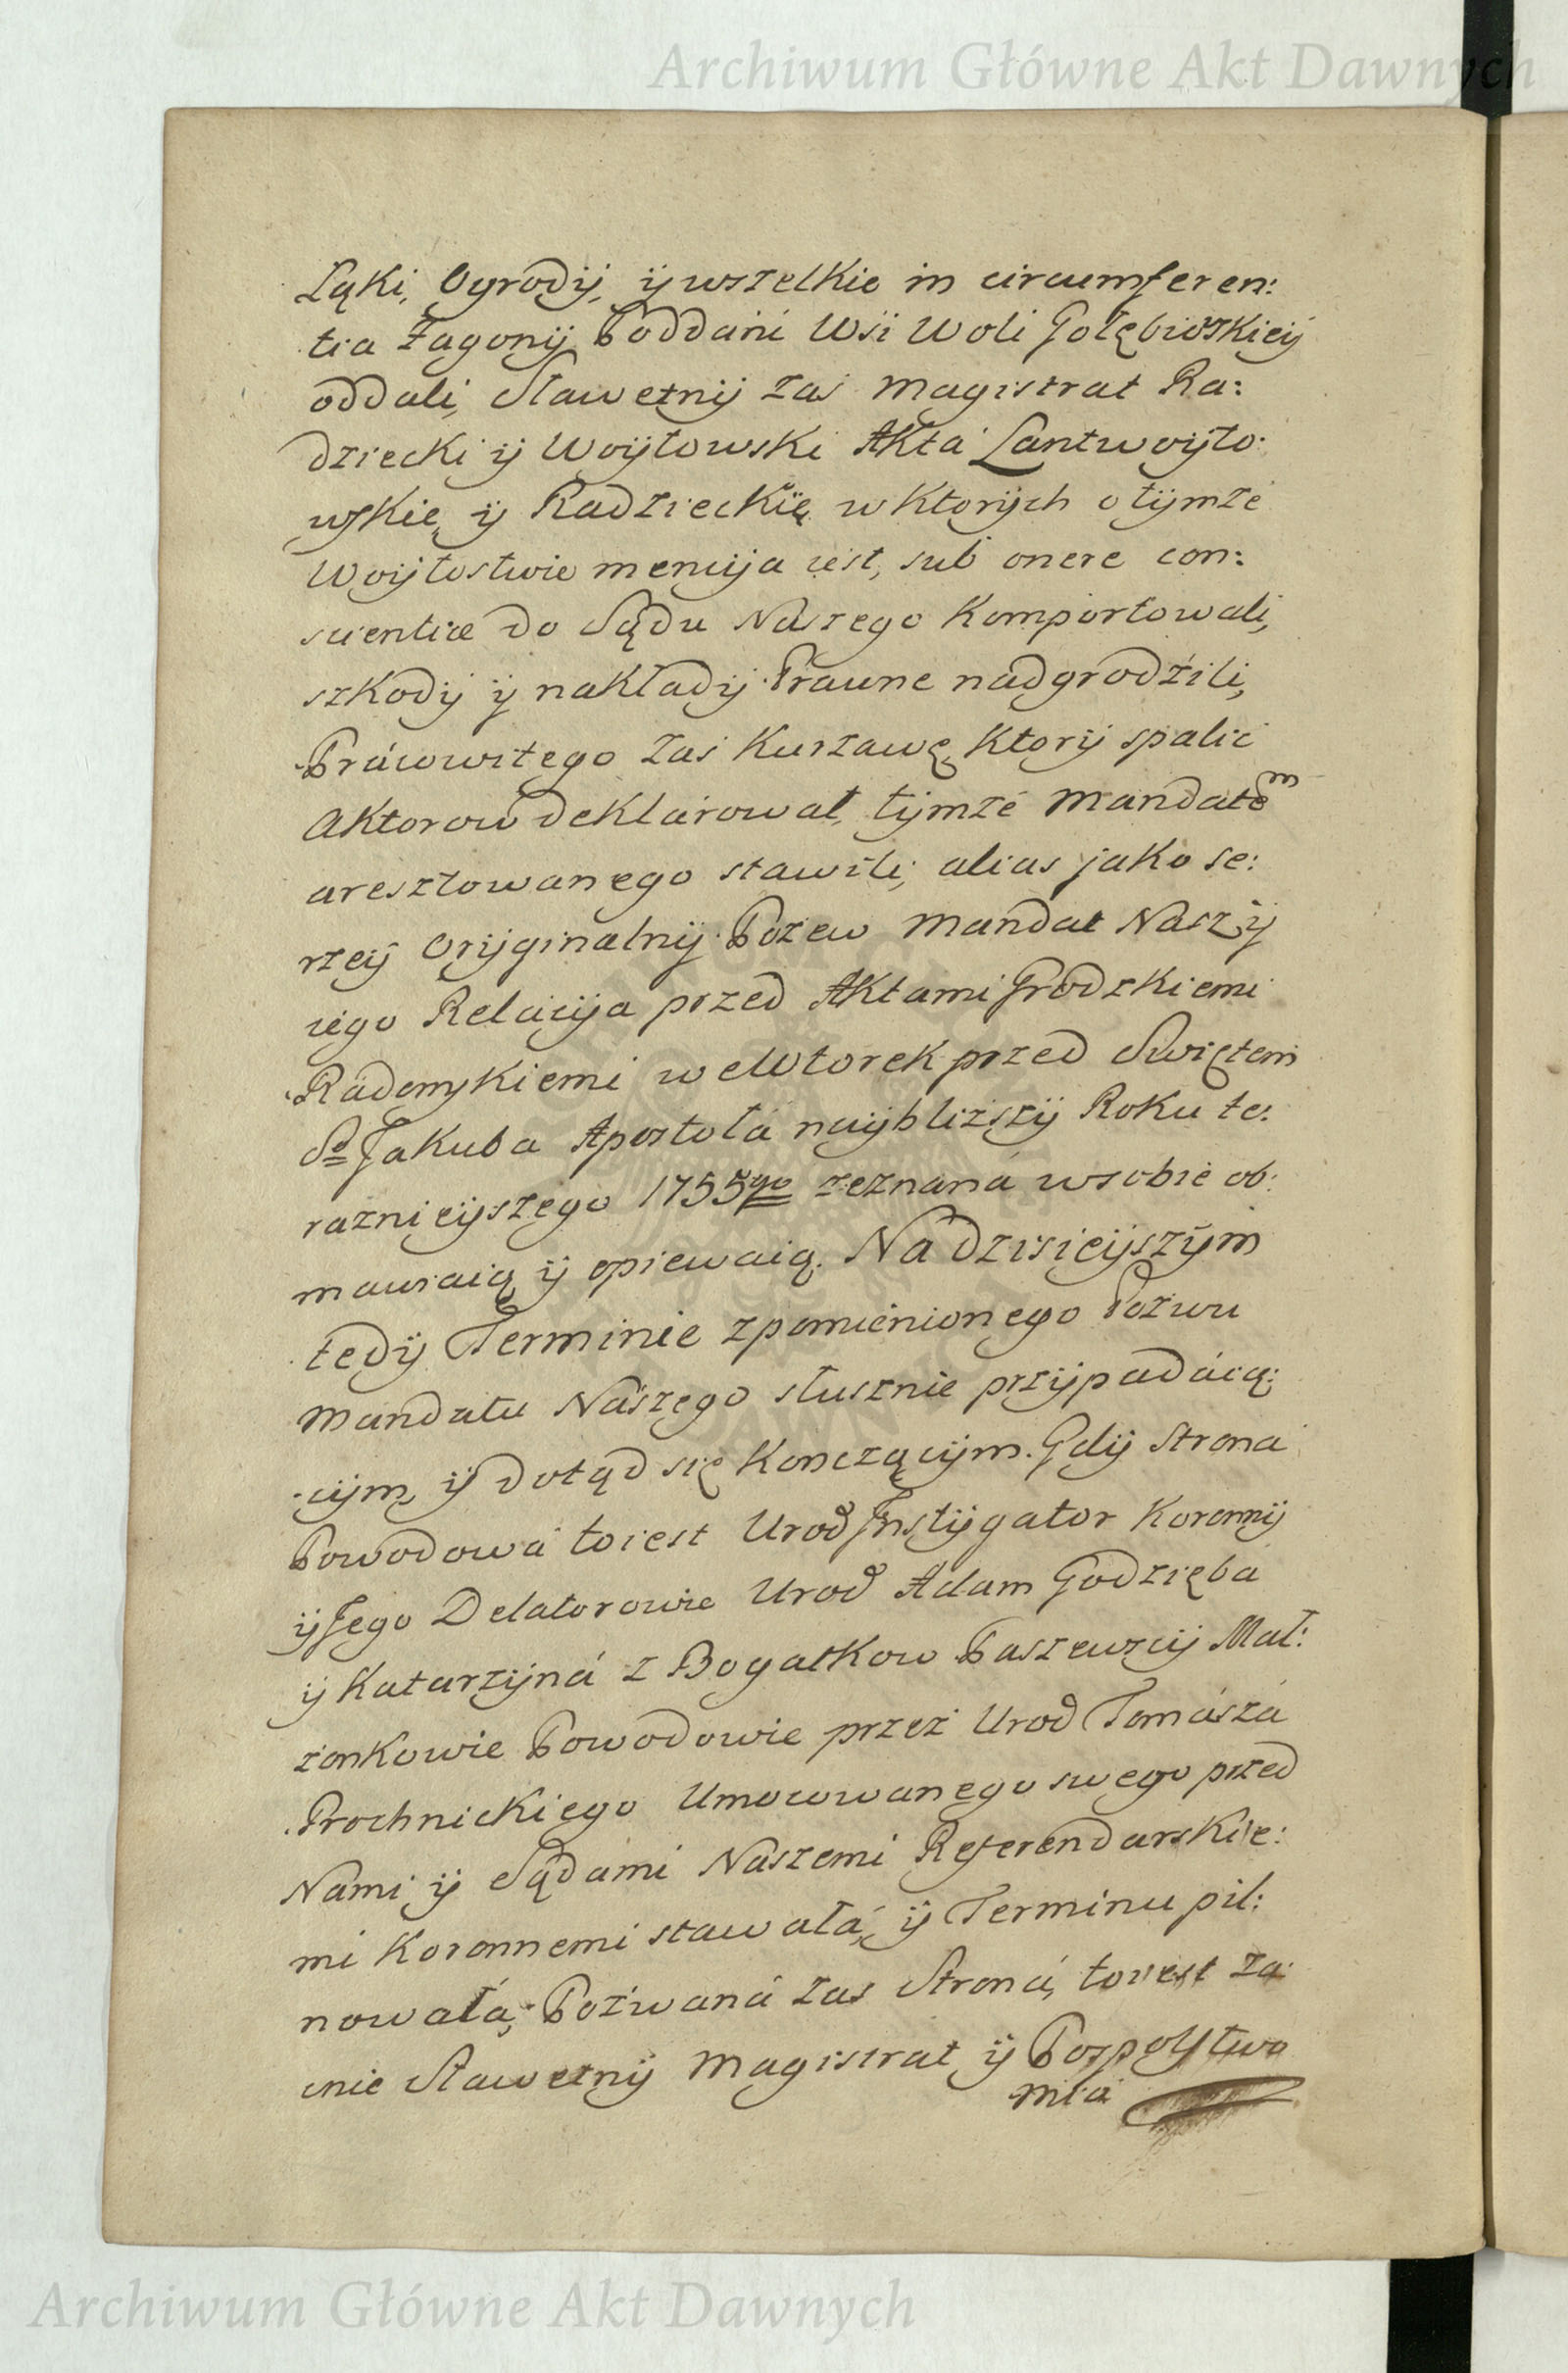 Archiwum Główne Akt Dawnych
Łąki, Ogrodÿ, ÿ wszelkie in circumferen:
tia Zagonÿ Poddani Wsi Woli Gołębiowskieÿ
oddali, Sławetnÿ zaś Magistrat Ra:
dziecki ÿ Woÿtowski Akta Lantwoÿto:
wskie ÿ Radzieckie w ktorÿch o tÿmże
Woÿtostwie mencÿja iest, sub onere con:
scientiæ do Sądu Naszego komportowali,
szkodÿ ÿ nakładÿ Prawne nadgrodźili,
Pracowitego zaś Kurzawę, ktorÿ spalić
Aktorow deklarował, tÿmże Mandatem
aresztowanego stawili, alias jako sze:
rzeÿ Orÿginalnÿ Pozew Mandat Naszÿ
iego Relacÿja przed Aktami Grodzkiemi
Radomskiemi we Wtorek przed Swiętem
So Jakuba Apostoła naÿbliższÿ Roku te:
raznieÿszego 1755go zeznana w sobie ob:
mawiaią ÿ opiewaią. Na dzisieÿszÿm
tedÿ Terminie z pomienionego Pozwu
Mandatu Naszego słusznie przÿpadaią:
cÿm, ÿ dotąd się kończącÿm. Gdÿ Strona
Powodowa to iest Urod Instÿgator Koronnÿ
ÿ Jego Delatorowie Urod Adam Godzięba
ÿ Katarzÿna z Bogatkow Paszewscÿ Mał:
żonkowie Powodowie przez Urod Tomasza
Prochnickiego Umocowanego swego przed
Nami ÿ Sądami Naszemi Referendarskie:
mi Koronnemi stawała, ÿ Terminu pil:
nowała, Pozwana zaś Strona, to iest Za:
cnie Sławetnÿ Magistrat ÿ Pospolstwo
Mia
Archiwum Główne Akt Dawnych